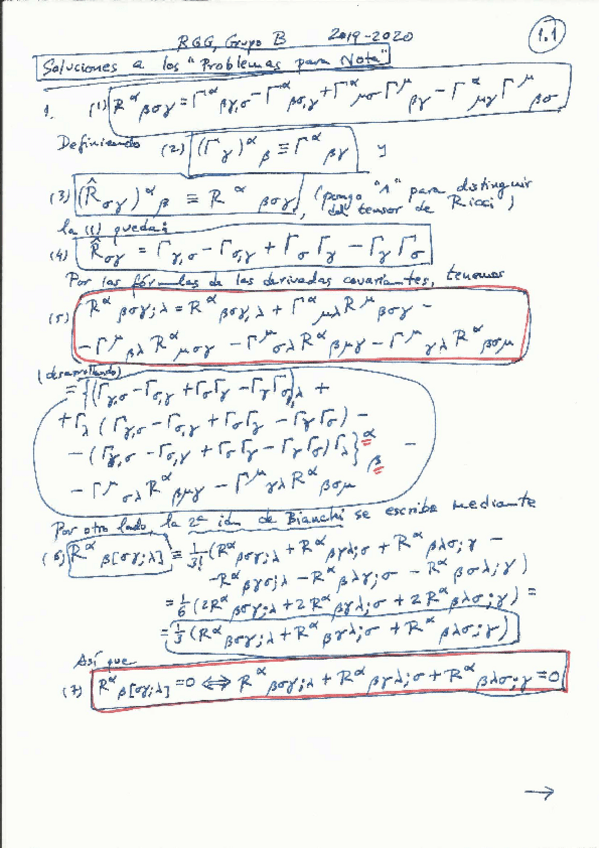 RGG, Grupo B 2019-2020 1.1
Soluciones a los "Problemas para Nota"
1. (1) R^α_{βσγ} = Γ^α_{βγ,σ} - Γ^α_{βσ,γ} + Γ^α_{μσ} Γ^μ_{βγ} - Γ^α_{μγ} Γ^μ_{βσ}
Definiendo (2) (Γ_γ)^α_β ≡ Γ^α_{βγ} y
(3) (R̂_{σγ})^α_β ≡ R^α_{βσγ}, (pongo "∧" para distinguir
del tensor de Ricci)
la (1) queda:
(4) R̂_{σγ} = Γ_{γ,σ} - Γ_{σ,γ} + Γ_σ Γ_γ - Γ_γ Γ_σ
Por las fórmulas de las derivadas covariantes, tenemos
(5) R^α_{βσγ;λ} = R^α_{βσγ,λ} + Γ^α_{μλ} R^μ_{βσγ} -
- Γ^μ_{βλ} R^α_{μσγ} - Γ^μ_{σλ} R^α_{βμγ} - Γ^μ_{γλ} R^α_{βσμ}
(desarrollando)
= {(Γ_{γ,σ} - Γ_{σ,γ} + Γ_σ Γ_γ - Γ_γ Γ_σ)_{,λ} +
+ Γ_λ (Γ_{γ,σ} - Γ_{σ,γ} + Γ_σ Γ_γ - Γ_γ Γ_σ) -
- (Γ_{γ,σ} - Γ_{σ,γ} + Γ_σ Γ_γ - Γ_γ Γ_σ) Γ_λ}^α_β -
- Γ^μ_{σλ} R^α_{βμγ} - Γ^μ_{γλ} R^α_{βσμ}
Por otro lado, la 2ª idn de Bianchi se escribe mediante
(6) R^α_{β[σγ;λ]} ≡ 1/3! (R^α_{βσγ;λ} + R^α_{βγλ;σ} + R^α_{βλσ;γ} -
- R^α_{βγσ;λ} - R^α_{βλγ;σ} - R^α_{βσλ;γ})
= 1/6 (2R^α_{βσγ;λ} + 2R^α_{βγλ;σ} + 2R^α_{βλσ;γ}) =
= 1/3 (R^α_{βσγ;λ} + R^α_{βγλ;σ} + R^α_{βλσ;γ})
Así que
(7) R^α_{β[σγ;λ]} = 0 ⟺ R^α_{βσγ;λ} + R^α_{βγλ;σ} + R^α_{βλσ;γ} = 0
→